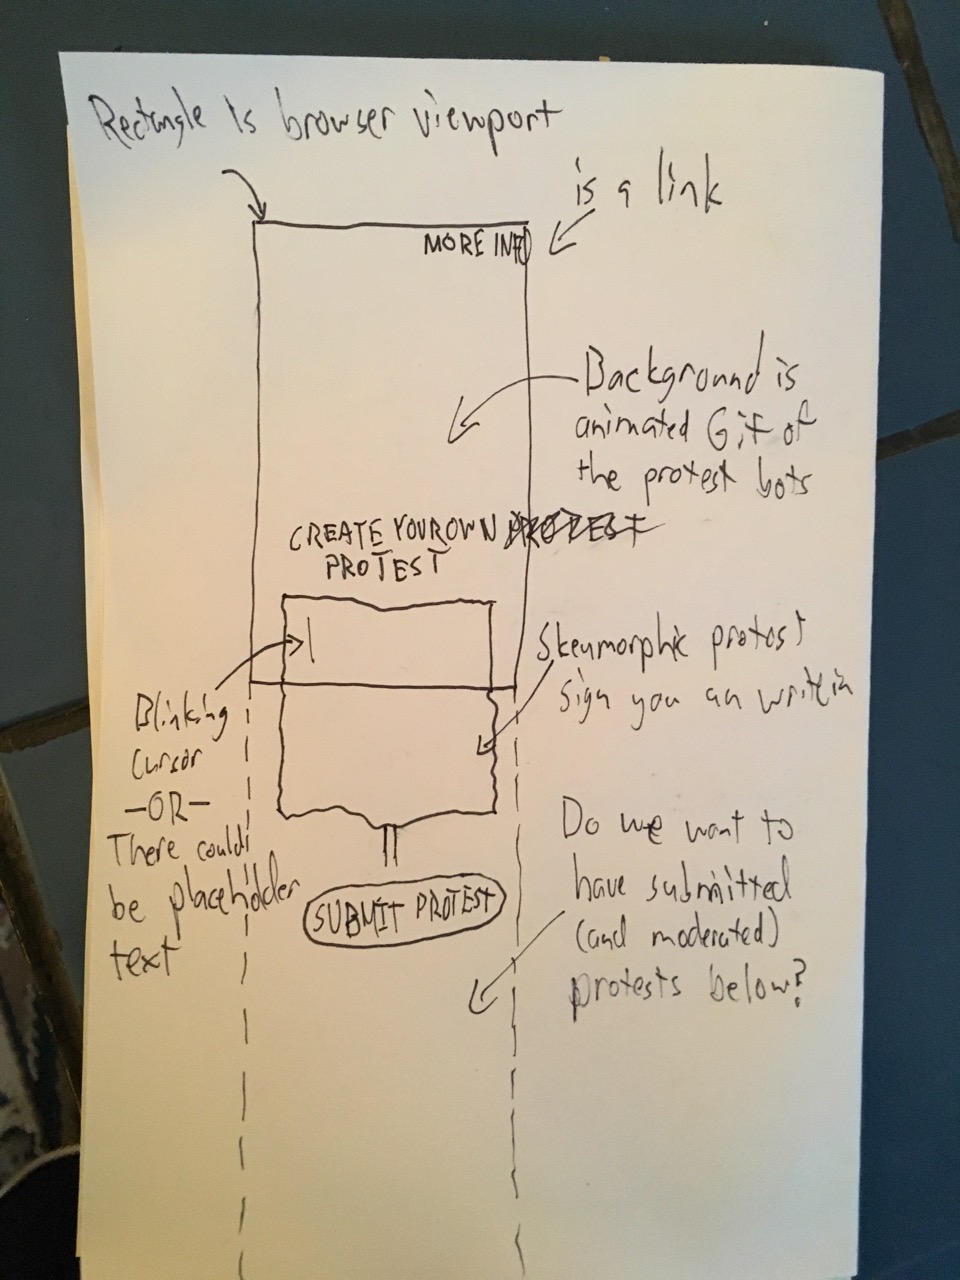 Rectangle Is browser viewport
is a link
MORE INFO
Background is
animated Gif of
the protest bots
CREATE YOUR OWN PROTEST
PROTEST
Skeumorphic protest
sign you can write in
Blinking
cursor
—OR—
There could
be placeholder
text
SUBMIT PROTEST
Do we want to
have submitted
(and moderated)
protests below?